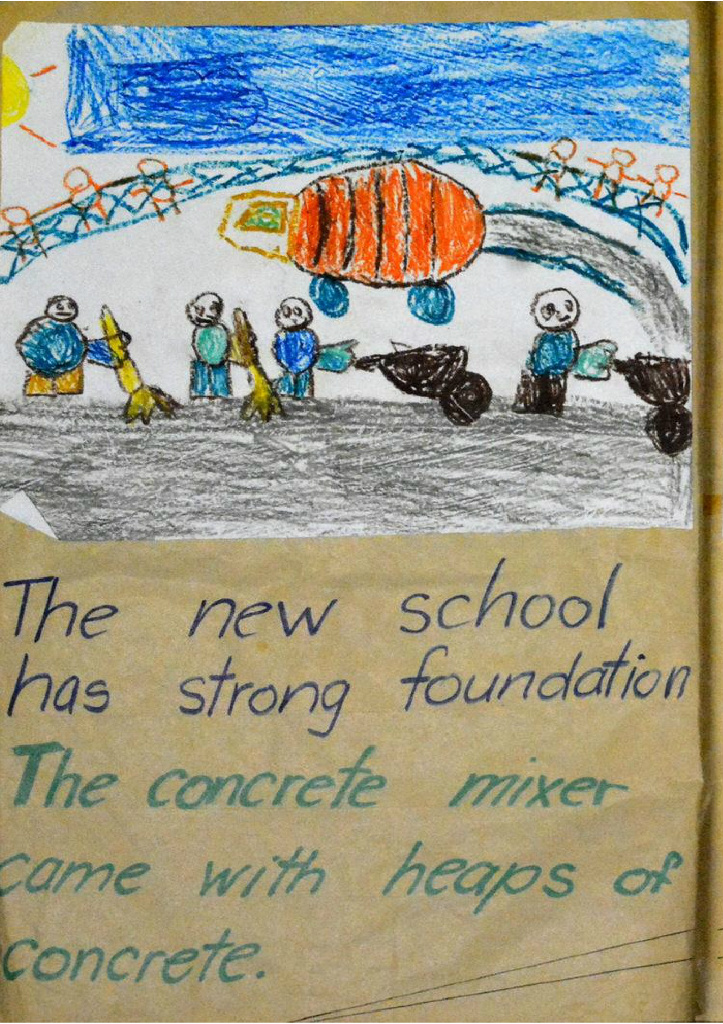 The new school
has strong foundation
The concrete mixer
came with heaps of
concrete.